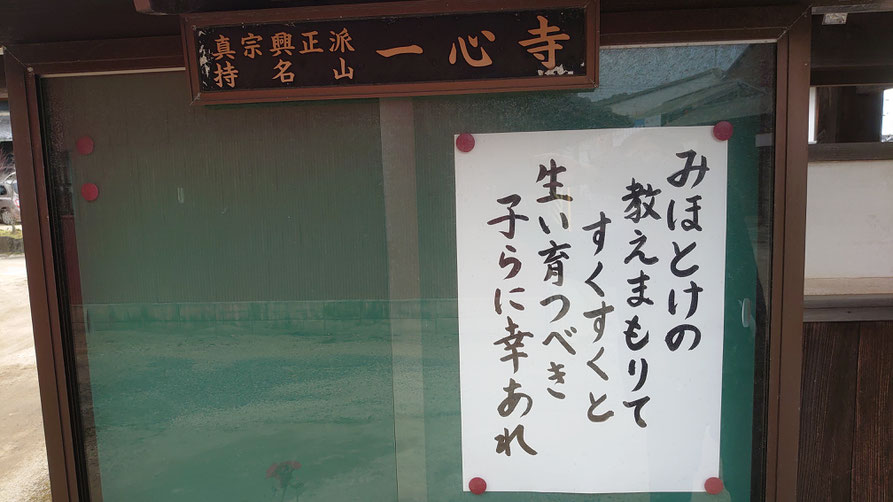 真宗興正派
持名山
一心寺
みほとけの
教えまもりて
すくすくと
生い育つべき
子らに幸あれ